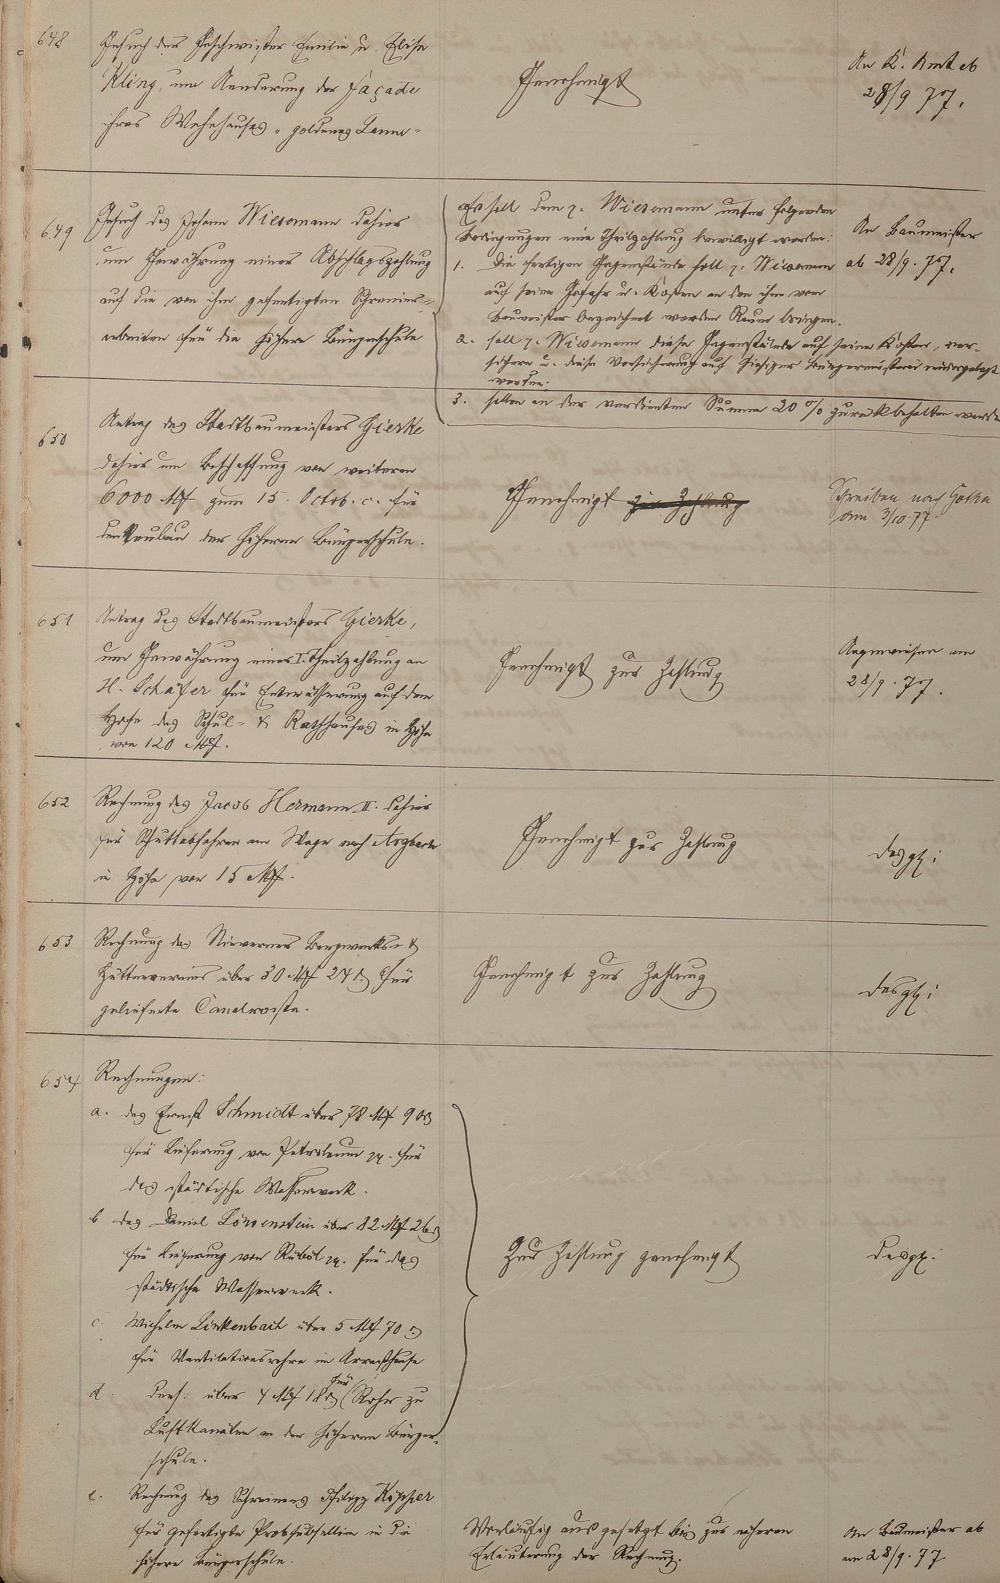 648
Gesuch der Geschwister Emilie u. Elise
Kling, um Aenderung der Façade
ihres Wohnhauses „goldenes Lamm“
Genehmigt
An K. Amt ab
28/9 77.
649
Gesuch des Johann Wiesemann dahier
um Gewährung einer Abschlagszahlung
auf die von ihm gefertigten Schreiner-
arbeiten für die höhere Bürgerschule
Es soll dem p. Wiesemann unter folgenden
Bedingungen eine Theilzahlung bewilligt werden:
1. Die fertigen Gegenstände soll p. Wiesemann
auf seine Gefahr u. Kosten an den ihm vom
Baumeister bezeichnet werden Raum bringen.
2. soll p. Wiesemann diese Gegenstände auf seine Kosten, ver-
sichern u. diese Versicherung auf hiesiger Bürgermeisterei niedergelegt
werden.
3. sollen an der verdienten Summe 20 % zurückbehalten werden
An Baumeister
ab 28/9. 77.
650
Antrag des Stadtbaumeisters Gierke
dahier um Beschaffung von weiteren
6000 Mk zum 15. Octob. c. für
den Neubau der höheren Bürgerschule.
Genehmigt zur Zahlung
Schreiben nach Gotha
am 3/10.77.
651
Antrag des Stadtbaumeisters Gierke,
um Gewährung einer I. Theilzahlung an
H. Schäfer für Entwässerung auf dem
Hofe des Schul- & Rathhauses in Höhe
von 120 Mk.
Genehmigt zur Zahlung
Angewiesen am
28/9. 77.
652
Rechnung des Jacob Hermann II. dahier
für Schuttabfahren am Wege nach
in Höhe von 15 Mk.
Genehmigt zur Zahlung
desgl:
653
Rechnung des Nieverner Bergwerks- &
Hüttenvereins über 30 Mk 27 für
gelieferte Canalroste.
Genehmigt zur Zahlung
desgl:
654
Rechnungen:
a. des Ernst Schmidt über 78 Mk 90
für Lieferung von Petroleum pp. für
das städtische Wasserwerk.
b des Daniel Löwenstein über 82 Mk 26
für Lieferung von Rüböl pp. für das
städtische Wasserwerk.
c. Wilhelm Linkenbach über 5 Mk 70
für Ventilationsrohre im Arresthause
d. ders: über 4 Mk 18 für Rohre zu
Luftkanälen in der höheren Bürger-
schule.
Zur Zahlung genehmigt
desgl:
e. Rechnung des Schreiners Philipp Küpper
für gefertigte Probesubsellien in die
höhere Bürgerschule.
Vorläufig ausgesetzt bis zur näheren
Erläuterung der Rechnung.
An Baumeister ab
am 28/9. 77